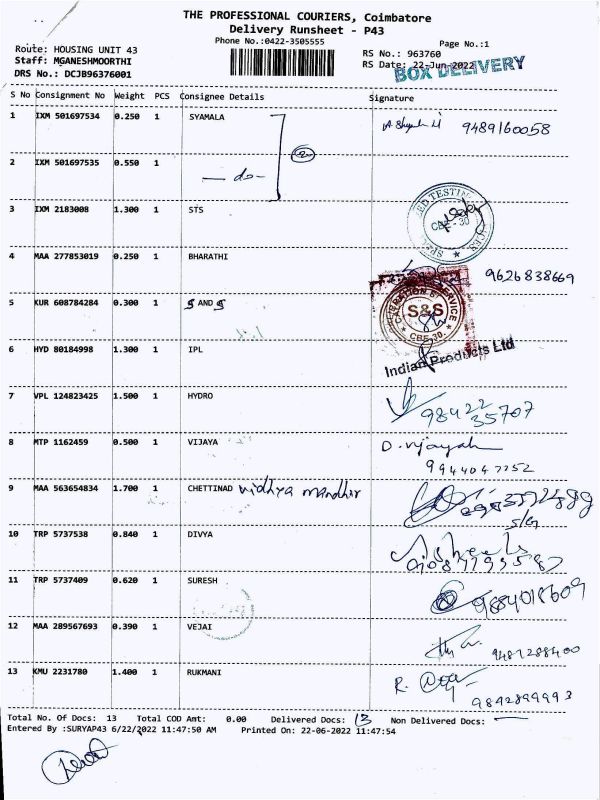 THE PROFESSIONAL COURIERS, Coimbatore
Delivery Runsheet - P43
Phone No.:0422-3505555
Page No.:1
Route: HOUSING UNIT 43
RS No.: 963760
Staff: MGANESHMOORTHI
RS Date: 22-Jun-2022
DRS No.: DCJB96376001
BOX DELIVERY
S No Consignment No Weight PCS Consignee Details Signature
1 IXM 501697534 0.250 1 SYAMALA 9489160058
2 IXM 501697535 0.550 1 — do —
3 IXM 2183008 1.300 1 STS
CBE - 30
4 MAA 277853019 0.250 1 BHARATHI 9626838669
5 KUR 608784284 0.300 1 S AND S
S&S
CBE-30.
6 HYD 80184998 1.300 1 IPL
Indian Products Ltd
7 VPL 124823425 1.500 1 HYDRO 98422 35707
8 MTP 1162459 0.500 1 VIJAYA D. Vijayah
9944047252
9 MAA 563654834 1.700 1 CHETTINAD vidhya mandhir
S/G
10 TRP 5737538 0.840 1 DIVYA
11 TRP 5737409 0.620 1 SURESH 9884018609
12 MAA 289567693 0.390 1 VEJAI 9487288400
13 KMU 2231780 1.400 1 RUKMANI R.
9842899993
Total No. Of Docs: 13 Total COD Amt: 0.00 Delivered Docs: 13 Non Delivered Docs: —
Entered By :SURYAP43 6/22/2022 11:47:50 AM Printed On: 22-06-2022 11:47:54